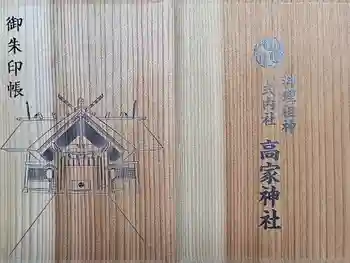 御朱印帳
料理祖神
式内社
高家神社